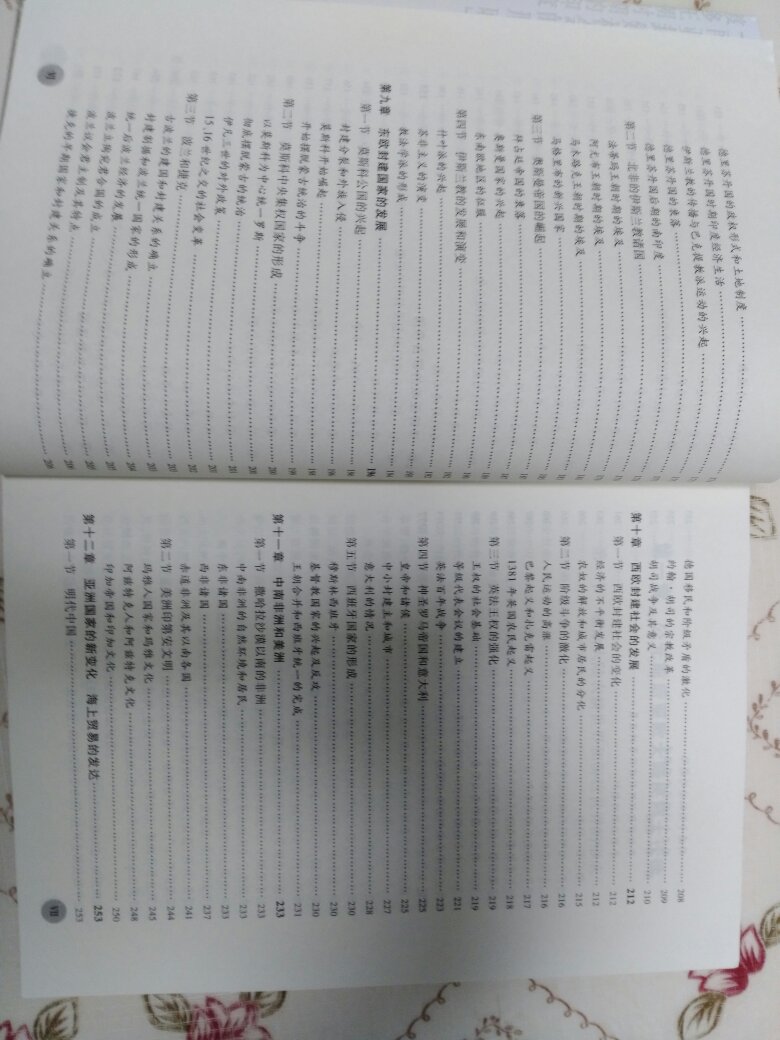 德里苏丹国的政权形式和土地制度
德里苏丹国时期印度经济生活
伊斯兰教的传播与巴克提教派运动的兴起
德里苏丹国的衰落
德里苏丹国后期的南印度
第二节 北非的伊斯兰教诸国
法蒂玛王朝时期的埃及
阿尤布王朝时期的埃及
马木路克王朝时期的埃及
马格里布的新兴国家
第三节 奥斯曼帝国的崛起
拜占廷帝国的衰落
奥斯曼国家的兴起
东南欧地区的征服
第四节 伊斯兰教的发展和演变
什叶派的兴起
苏非主义的演变
教法学派的形成
第九章 东欧封建国家的发展
第一节 莫斯科公国的兴起
封建分裂和外族入侵
莫斯科开始崛起
开始摆脱蒙古统治的斗争
第二节 莫斯科中央集权国家的形成
以莫斯科为中心统一罗斯
彻底摆脱蒙古的统治
伊凡三世的对外政策
15、16世纪之交的社会变革 201
第三节 波兰和捷克 202
古波兰的建国和封建关系的确立 202
封建割据和波兰统一国家的形成 203
统一后波兰经济的发展 204
波兰立陶宛君合国的成立 205
波兰议会君主制及其特点
捷克的早期国家和封建关系的确立
VI
德国移民和阶级矛盾的激化 208
约翰·胡司的宗教改革 209
胡司战争及其意义 210
第十章 西欧封建社会的发展 212
第一节 西欧封建社会的变化 212
经济的不平衡发展 212
农奴的解放和城市居民的分化 215
第二节 阶级斗争的激化 216
人民运动的高涨 216
巴黎起义和扎克雷起义 217
1381年英国农民起义 218
第三节 英法王权的强化 219
王权的社会基础 219
等级代表会议的建立 221
英法百年战争 223
第四节 神圣罗马帝国和意大利 225
皇帝和诸侯 225
中小封建主和城市 227
意大利的情况 228
第五节 西班牙国家的形成 230
穆斯林西班牙 230
基督教国家的兴起及反攻 230
王朝合并和西班牙统一的完成 231
第十一章 中南非洲和美洲 233
第一节 撒哈拉沙漠以南的非洲 233
中南非洲的自然环境和居民 233
东非诸国 233
西非诸国 237
赤道非洲及其以南各国 241
第二节 美洲印第安文明 244
玛雅人国家和玛雅文化 245
阿兹特克人和阿兹特克文化 248
印加帝国和印加文化 250
第十二章 亚洲国家的新变化 海上贸易的发达 253
第一节 明代中国 253
VII